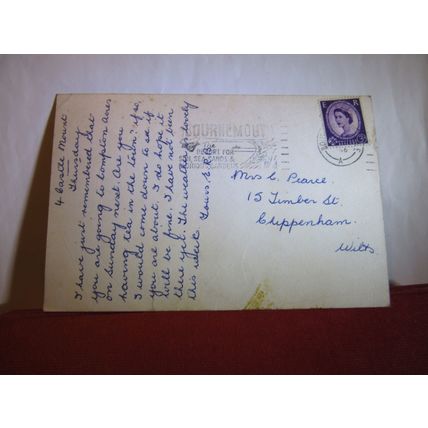 4 Castle Mount
Thursday
I have just remembered that
you are going to Compton Acres
on Sunday next. Are you
having tea in the town? if so,
I would come down to see if
you are about. I do hope it
will be fine. I have not been
there yet. The weather is lovely
this week. Yours E.
BOURNEMOUTH
The
RESORT FOR
SUN, SEA, SANDS &
GARDENS
E R
Mrs C. Pearce.
15 Timber St.
Chippenham.
Wilts